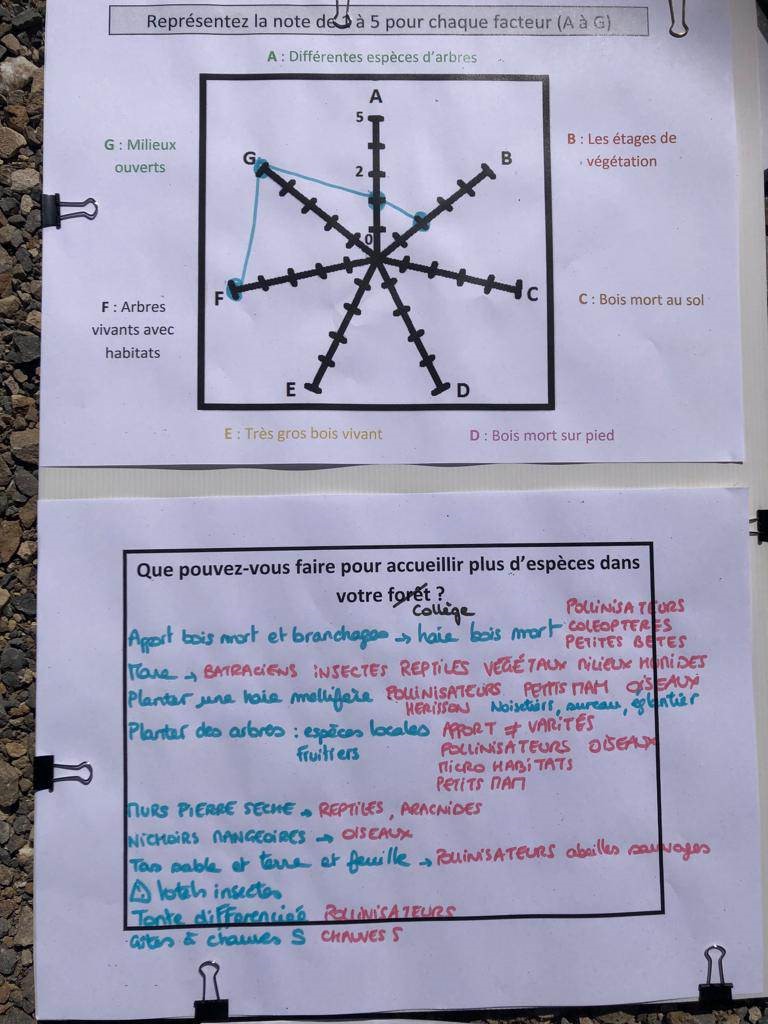 Représentez la note de à 5 pour chaque facteur (A à G)
A : Différentes espèces d'arbres
A
5
G : Milieux
ouverts
B : Les étages de
végétation
G
B
2
0
F
C
F : Arbres
vivants avec
habitats
C : Bois mort au sol
E
D
E : Très gros bois vivant
D : Bois mort sur pied
Que pouvez-vous faire pour accueillir plus d'espèces dans
votre forêt ?
Collège
POLLINISATEURS
Apport bois mort et branchages → haie bois mort COLEOPTERES
PETITES BETES
Mare → BATRACIENS INSECTES REPTILES VEGÉTAUX MILIEUX HUMIDES
Planter une haie mellifère POLLINISATEURS PETITS MAM OISEAUX
HERISSON Noisetiers, sureau, eglantier
Planter des arbres : espèces locales APPORT ≠ VARITÉS
fruitiers POLLINISATEURS OISEAUX
MICRO HABITATS
PETITS MAM
MURS PIERRE SECHE → REPTILES, ARACNIDES
NICHOIRS MANGEOIRES → OISEAUX
Tas sable et terre et feuille → POLLINISATEURS abeilles sauvages
⚠ hotels insectes
Tonte différenciée POLLINISATEURS
Gites à chauves S CHAUVES S